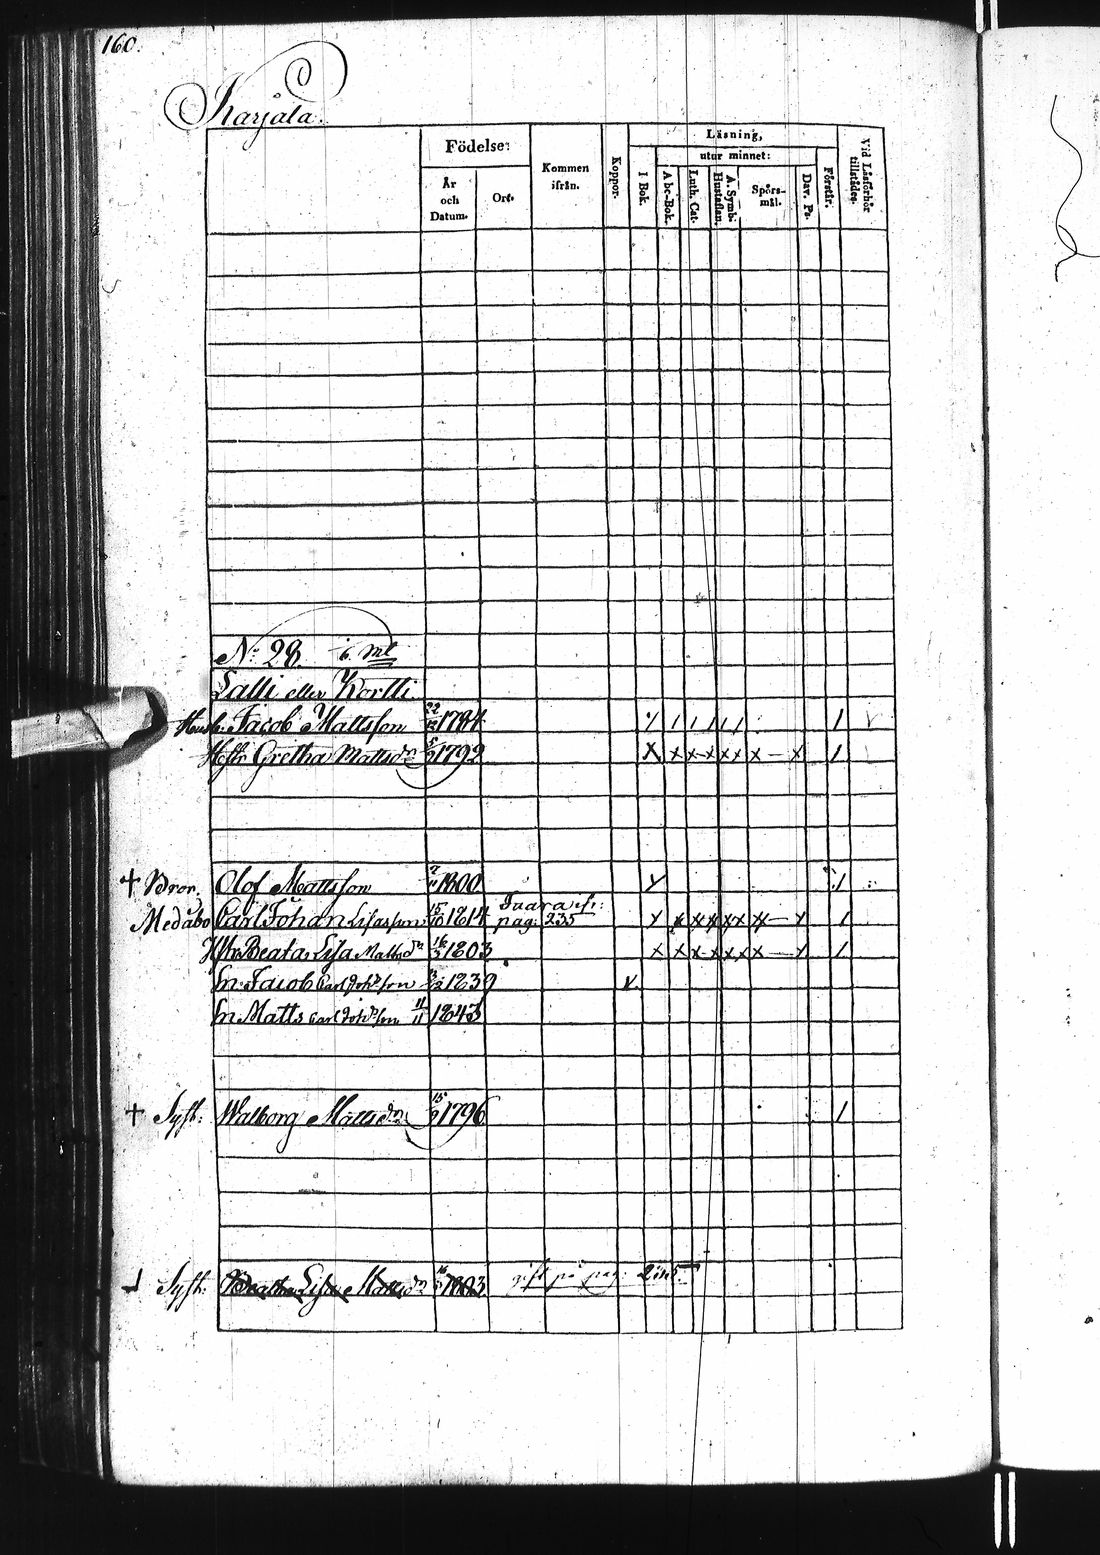 160.
Karjala.
Födelse:
År och Datum.
Ort.
Kommen ifrån.
Koppor.
Läsning,
I Bok.
utur minnet:
Abc-Bok.
Luth. Cat.
A. Symb. Hustaflan.
Spörs-mål.
Dav. Ps.
Förstår.
Vid Läsförhör tillstädes.
No 28. 6. ml
Lalli eller Kortti
Husb. Jacob Mattsson 22/12 1784
Hstr Gretha Mattsdr 1792
+ Bror. Olof Mattsson 1800
Medåbo Carl Johan Lisasson 15/10 1814 pag: 235
Hstr Beata Lisa Mattsdr 16/3 1803
Sn. Jacob Carl Joh:sson 1839
Sn. Matts Carl Joh:sson 11/11 1843
+ Syst: Walborg Mattsdr 1796
Syst: Beatha Lisa Mattsdr 1803 gift på pag: 235